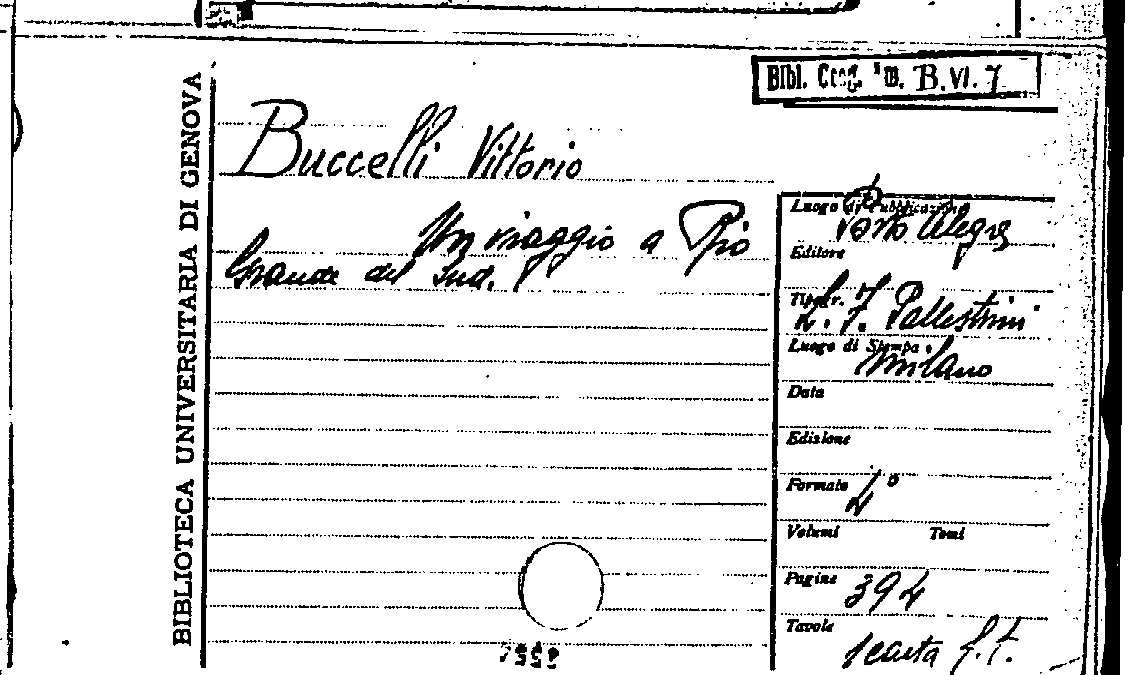 Bibl. Geog. B. VI. 7
BIBLIOTECA UNIVERSITARIA DI GENOVA
Buccelli Vittorio
Un viaggio a Rio
Grande del Sud.
Luogo di Pubblicazione Porto Alegre
Editore
Tipogr. L. F. Pallestrini
Luogo di Stampa Milano
Data
Edizione
Formato 4°
Volumi Tomi
Pagine 394
Tavole 1 carta f. t.